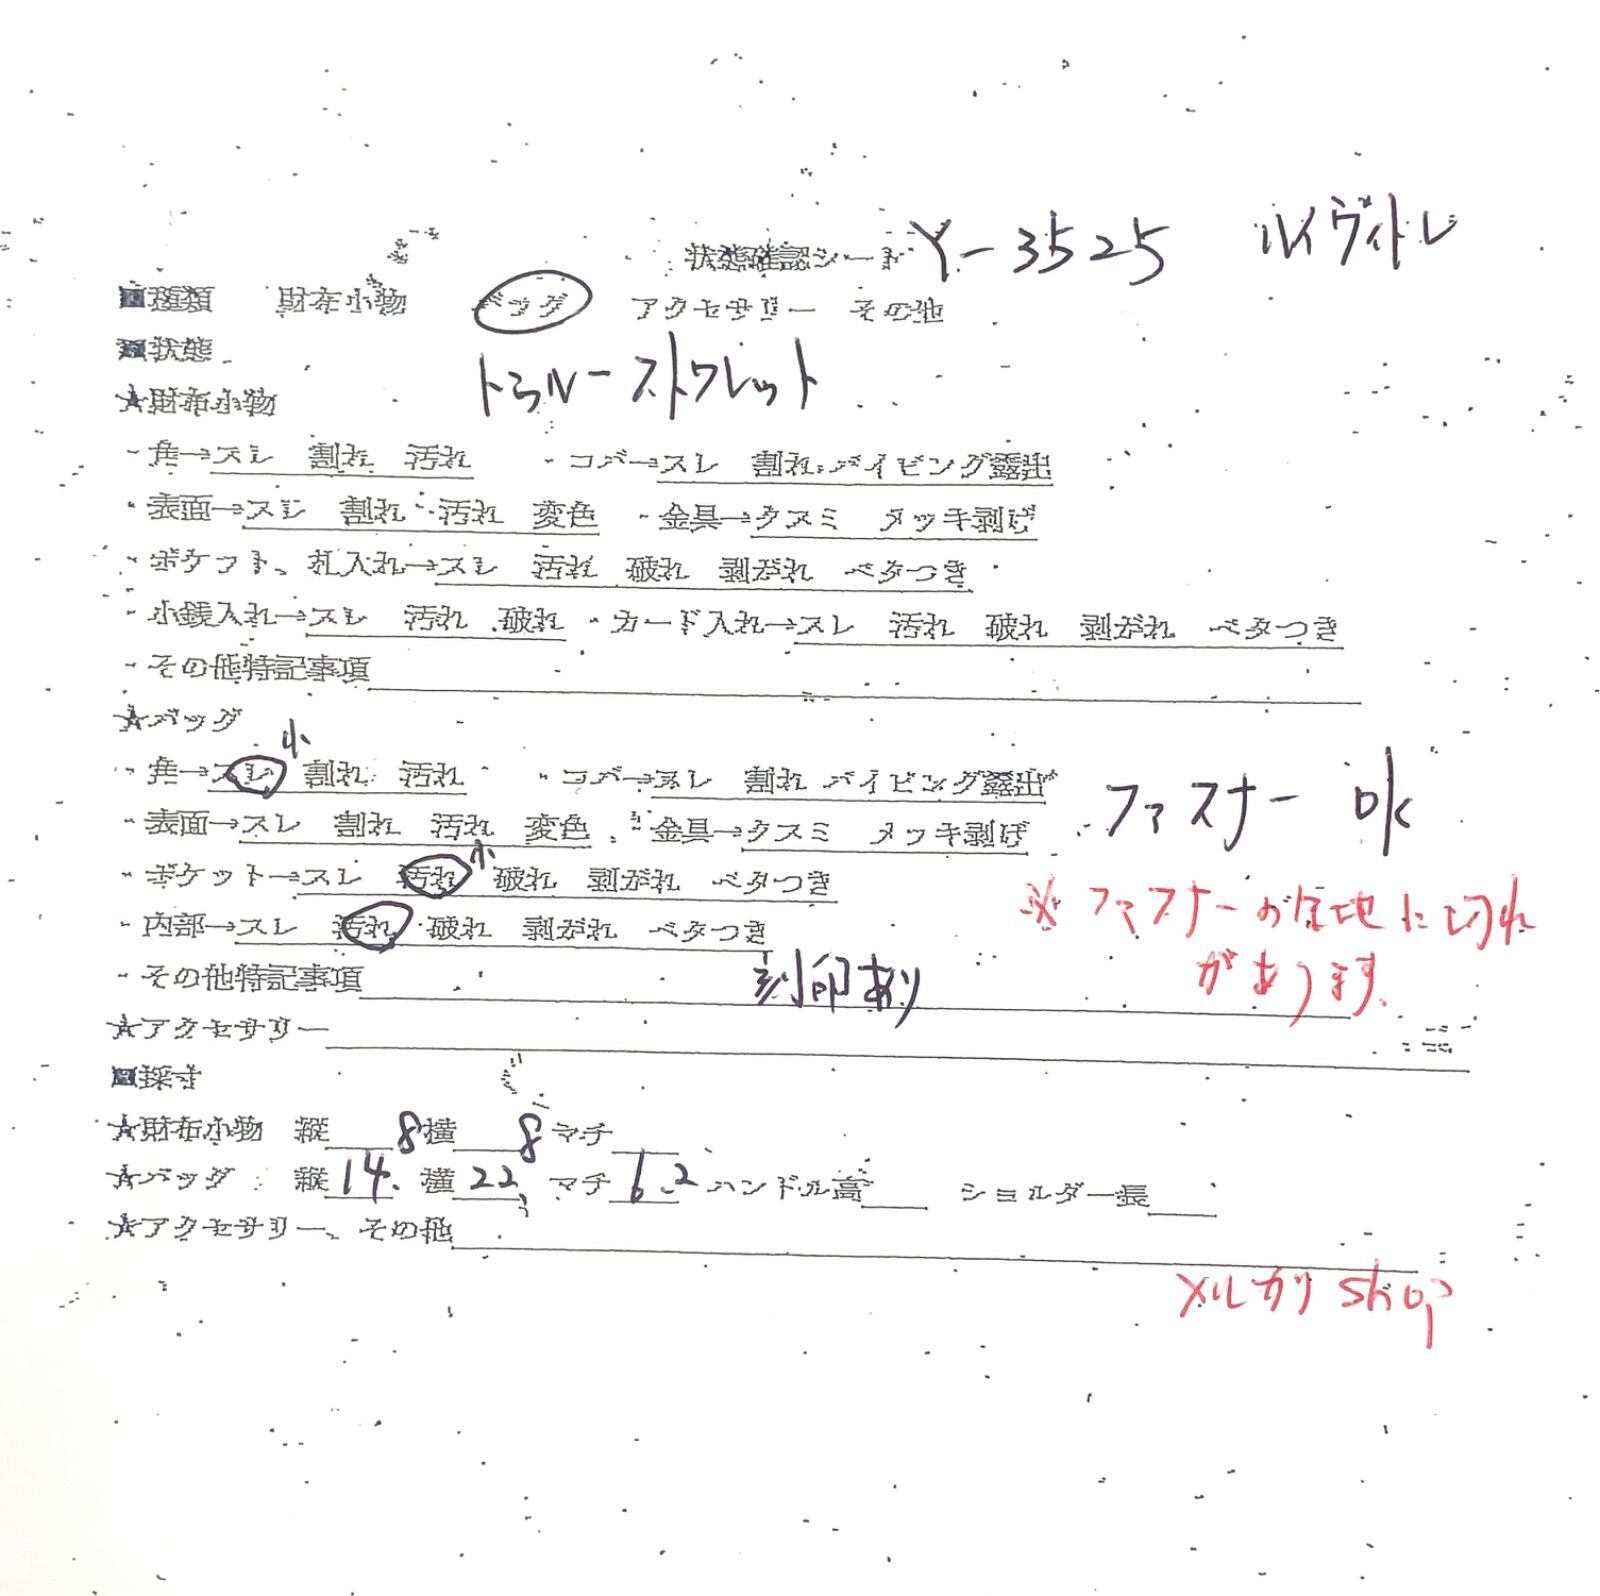 状態確認シート Y-3525 ルイヴィトン
■種類 財布小物 バッグ アクセサリー その他
■状態
トゥルーストワレット
★財布小物
・角→スレ 割れ 汚れ ・コバ→スレ 割れ パイピング露出
・表面→スレ 割れ 汚れ 変色 ・金具→クスミ メッキ剥げ
・ポケット、札入れ→スレ 汚れ 破れ 剥がれ ベタつき
・小銭入れ→スレ 汚れ 破れ ・カード入れ→スレ 汚れ 破れ 剥がれ ベタつき
・その他特記事項
★バッグ
小
・角→スレ 割れ 汚れ ・コバ→スレ 割れ パイピング露出
ファスナー ok
・表面→スレ 割れ 汚れ 変色 ・金具→クスミ メッキ剥げ
・ポケット→スレ 汚れ 小 破れ 剥がれ ベタつき
※ファスナーの生地に切れ
があります
・内部→スレ 汚れ 破れ 剥がれ ベタつき
・その他特記事項 刻印あり
★アクセサリー
■採寸
★財布小物 縦 8 横 8 マチ
★バッグ 縦 14. 横 22 マチ 6.2 ハンドル高 ショルダー長
★アクセサリー、その他
メルカリ shop